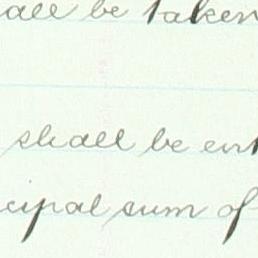 all be taken
shall be ent
cipal sum of